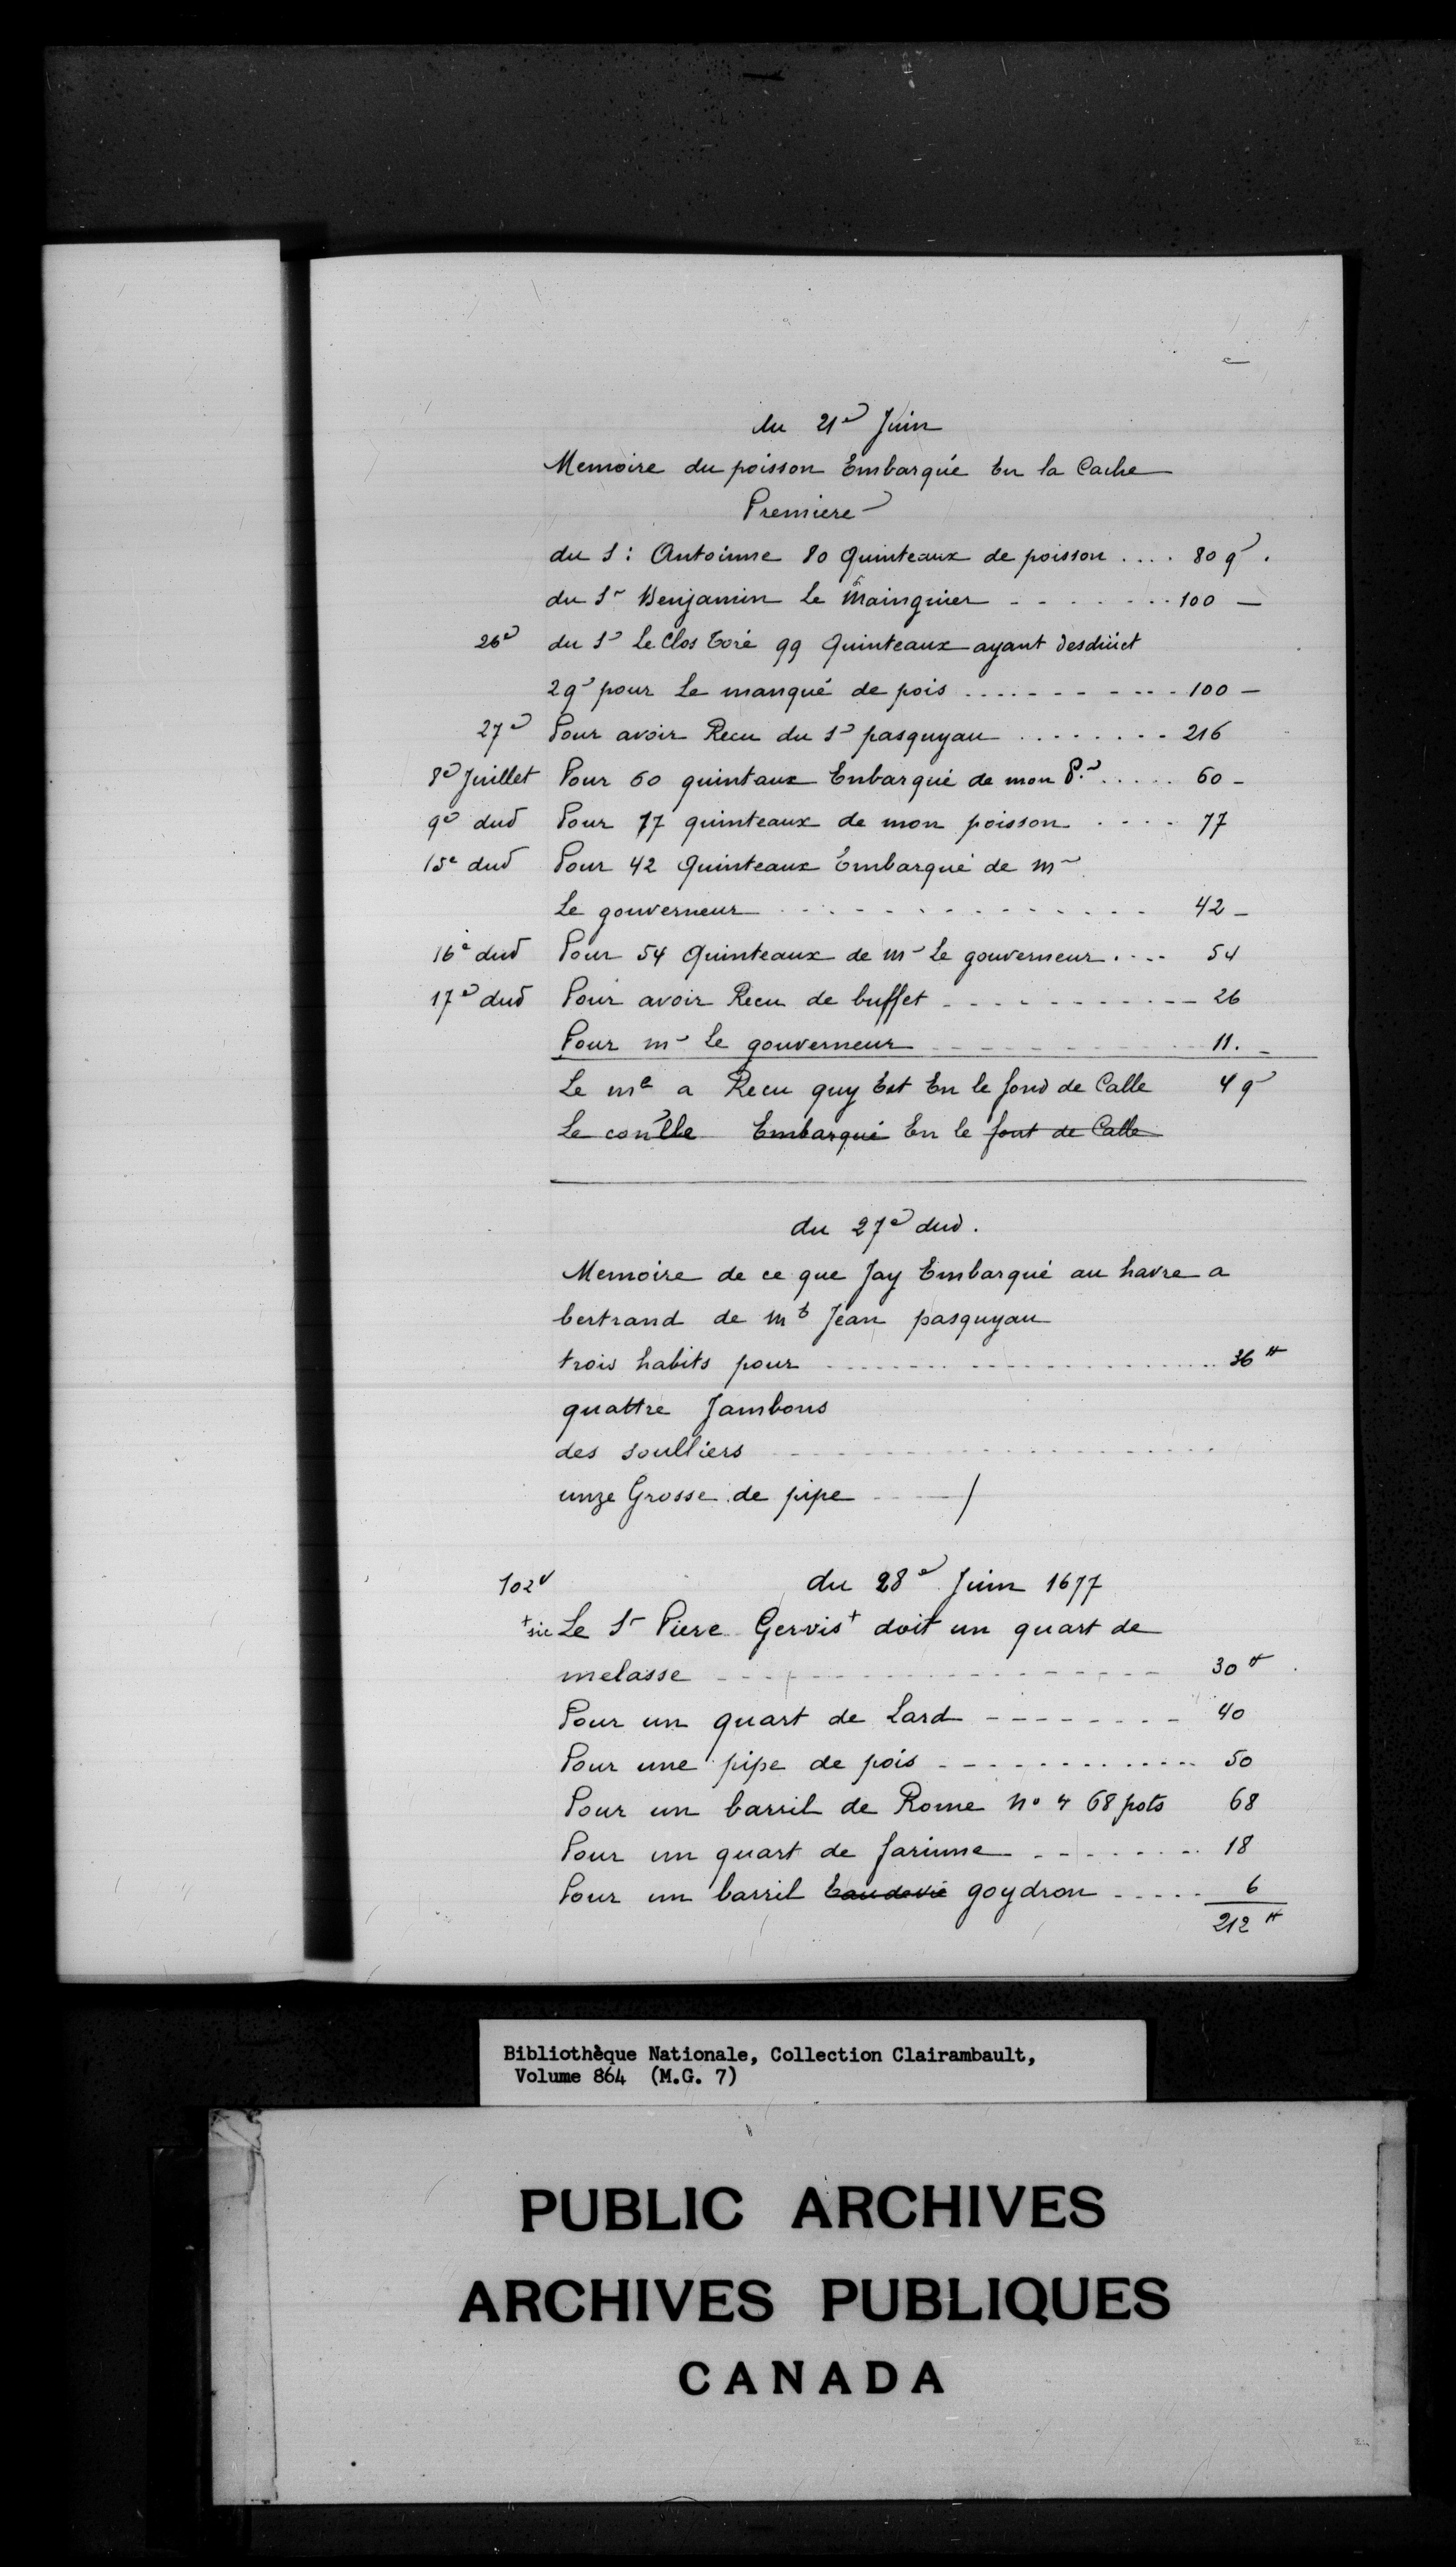 du 21e Juin
Memoire du poisson Embarqué En la Cache
Premiere
du S: Antoinne 80 Quinteaux de poisson .... 80 q.
du Sr Benjamin Le Mainguier - - - - - 100 —
26e du Sr Le Clos Toré 99 Quinteaux ayant desduict
2q pour Le manqué de pois ........ 100 —
27e Pour avoir Recu du Sr pasquyau ........ 216
8e Juillet Pour 60 quintaux Enbarqué de mon P. .... 60 -
9e dud Pour 77 quinteaux de mon poisson .... 77
15e dud Pour 42 Quinteaux Embarqué de mr
Le gouverneur - - - - - - - 42 -
16e dud Pour 54 Quinteaux de mr Le gouverneur .... 54
17e dud Pour avoir Recu de buffet - - - - - - 26
Pour mr Le gouverneur - - - - - - 11. -
Le me a Recu quy Est En le fond de Calle 4 q
Le Embarqué En le font de Calle
du 27e dud.
Memoire de ce que Jay Embarqué au havre a
bertrand de mt Jean pasquyau
trois habits pour ........ 36 ₶
quattre Jambons
des soulliers - - - - - -
unze Grosse de pipe - - - /
102v du 28e Juin 1677
+sic Le Sr Piere Gervis+ doit un quart de
melasse - - - - - - 30 ₶
Pour un quart de Lard - - - - - - 40
Pour une pipe de pois - - - - - - 50
Pour un barril de Rome No 4 68 pots 68
Pour un quart de farinne - - - - - - 18
Pour un barril Eaudevie goydron - - - - - 6
212 ₶
Bibliothèque Nationale, Collection Clairambault,
Volume 864 (M.G. 7)
PUBLIC ARCHIVES
ARCHIVES PUBLIQUES
CANADA